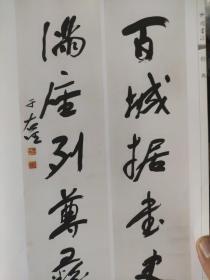 百城据书史
满座列尊彝
于右任